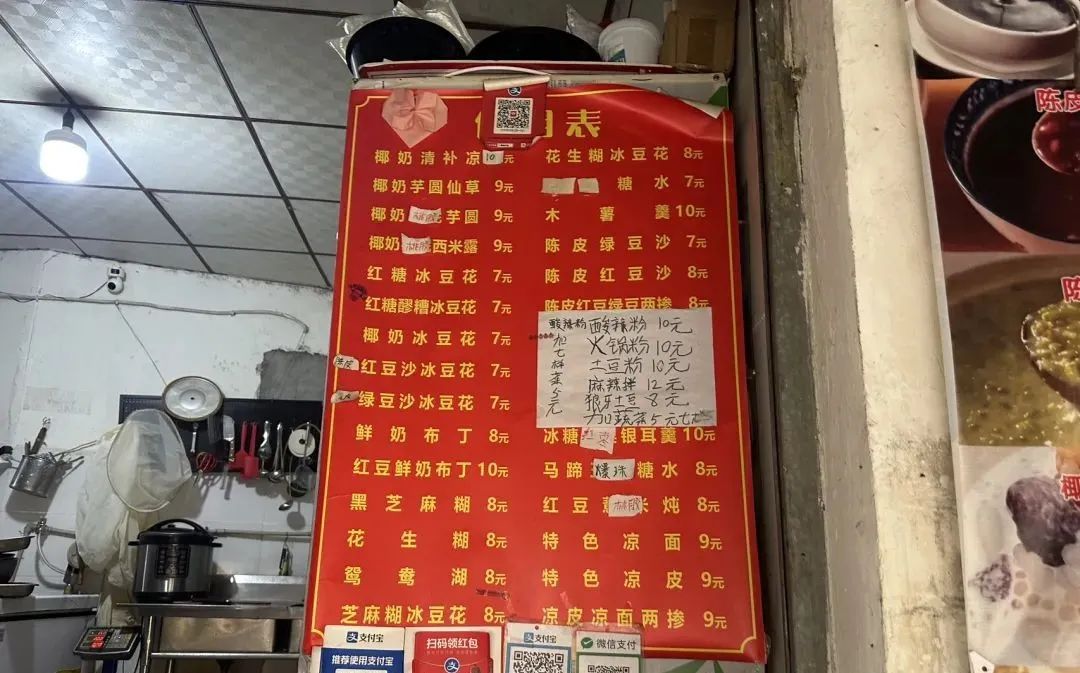 表
椰奶清补凉 10元
椰奶芋圆仙草 9元
椰奶桃胶芋圆 9元
椰奶桃胶西米露 9元
红糖冰豆花 7元
红糖醪糟冰豆花 7元
椰奶冰豆花 7元
陈皮红豆沙冰豆花 7元
绿豆沙冰豆花 7元
鲜奶布丁 8元
红豆鲜奶布丁 10元
黑芝麻糊 8元
花生糊 8元
鸳鸯湖 8元
芝麻糊冰豆花 8元
花生糊冰豆花 8元
糖水 7元
木薯羹 10元
陈皮绿豆沙 7元
陈皮红豆沙 8元
陈皮红豆绿豆两掺 8元
酸辣粉加七样菜5元
酸辣粉 10元
火锅粉 10元
土豆粉 10元
麻辣拌 12元
狼牙土豆 8元
加蔬菜5元七
冰糖红枣银耳羹 10元
马蹄爆珠糖水 8元
红豆薏米炖 8元
桃胶
特色凉面 9元
特色凉皮 9元
凉皮凉面两掺 9元
支付宝
推荐使用支付宝
扫码领红包
支付宝
微信支付
陈皮